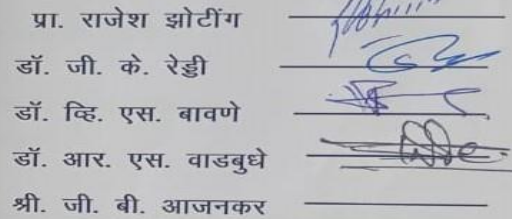 प्रा. राजेश झोटींग
डॉ. जी. के. रेड्डी
डॉ. व्हि. एस. बावणे
डॉ. आर. एस. वाडबुधे
श्री. जी. बी. आजनकर